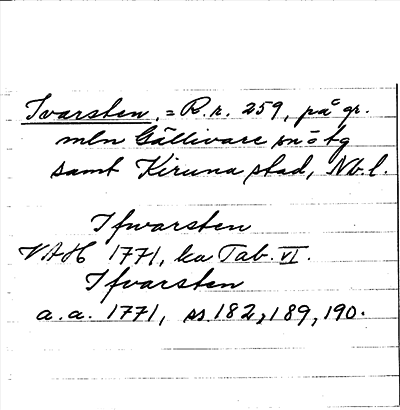 Ivarsten, = R.r. 259, på gr.
mln Gällivare sn o tg
samt Kiruna stad, Nb.l.
Ifwarsten
VAH 1771, ka Tab. VI.
Ifvarsten
a.a. 1771, ss 182, 189, 190.